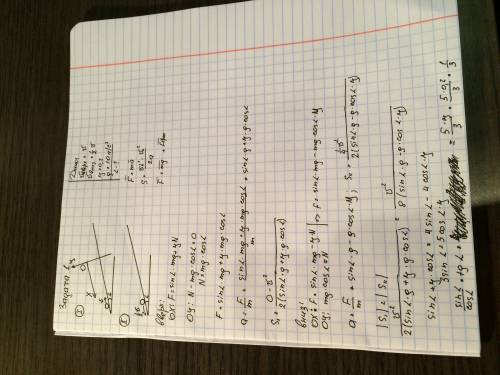 Задача 1
Дано:
υвверх = υ
υвниз = 1/2 υ
μ = 0,2
g = 10 м/с²
α - ?
F = mā
S = (υ² - υ₀²)/2a
F = mg + Fтр
①
②
Вверх:
OX: F = sinα·mg + μN
OY: N - mg·cosα = 0
N = mg·cosα
F = sinα·mg + μ·mg·cosα
a = F/m = (sinα·mg + μ·mg·cosα)/m = sinα·g + μ·g·cosα
S₁ = (0 - υ²)/(2(sinα·g + μ·g·cosα))
Вниз:
OX: F = sinα·mg - μN
OY: mg·cosα = N
=> F = sinα·mg - mg·cosα·μ
a = F/m = sinα·g - g·cosα·μ; S₂ = (1/4 υ²)/(2(sinα·g - g·cosα·μ))
|S₁| = |S₂|
υ²/(2(sinα·g + μ·g·cosα)) = υ²/(8(sinα·g - g·cosα·μ))
sinα + μ·cosα = 4sinα - 4cosα·μ
3sinα = 5cosα·μ
sinα/cosα = tgα = 5·μ/3 = 5·0,2/3 = 1/3